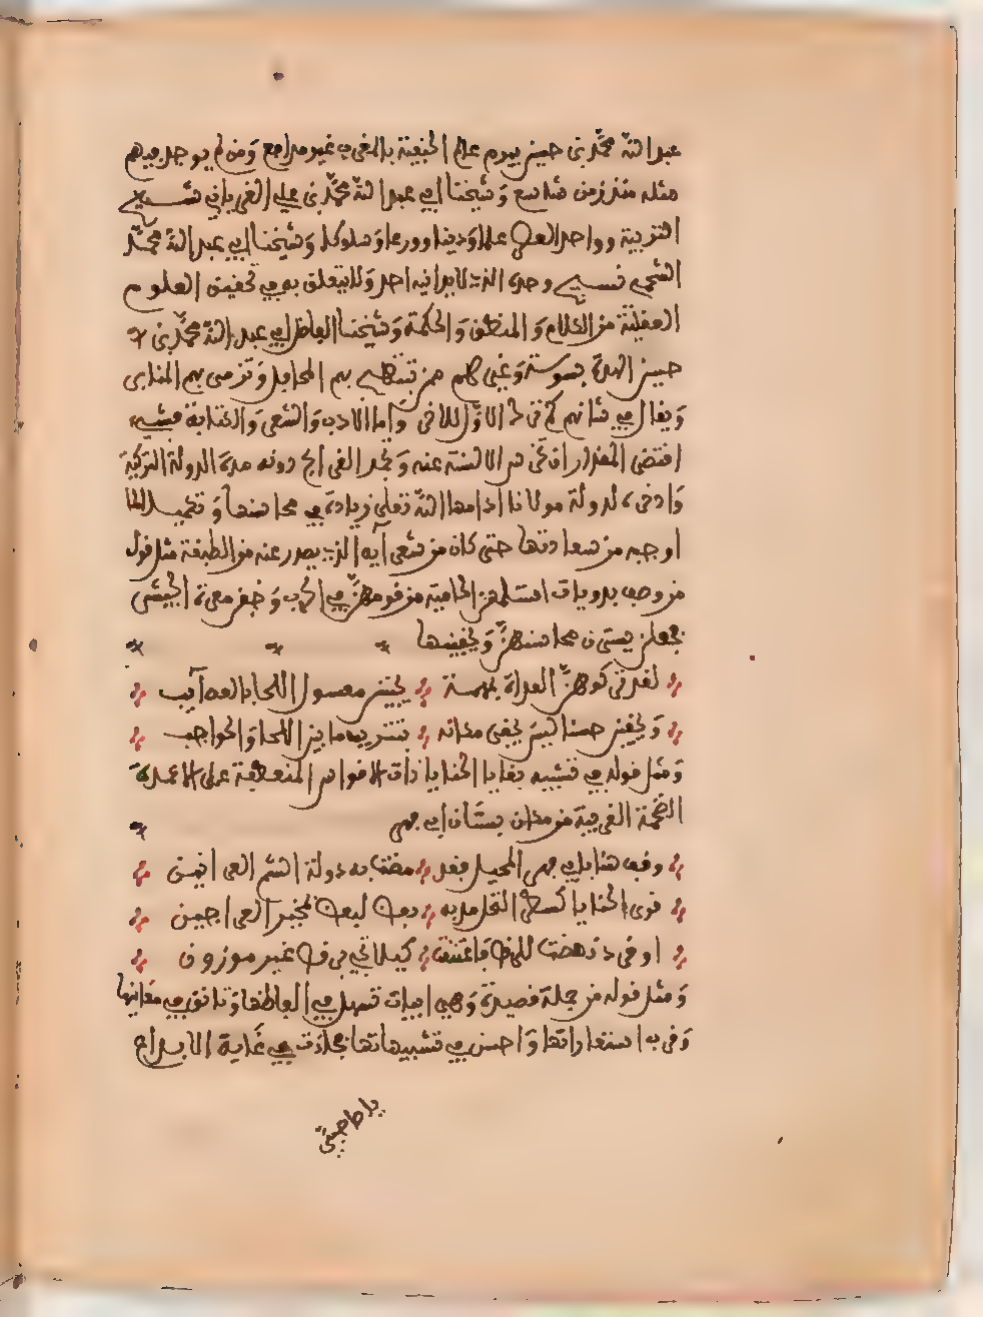 عبد الله محمد بن حسين بيرم عالم الحنفية بالمغرب غير مدافع ومن لم يوجد فيهم
مثله منذ زمن شاسع وشيخنا أبي عبد الله محمد بن علي الغرياني شيخ
التربية وواحد العصر علما ودينا وورعا وسلوكا وشيخنا أبي عبد الله محمد
الشحمي نسيج وحده الذي لا يدانيه احد ولا يتعلق به في تحقيق العلوم
العقلية من الكلام والمنطق والحكمة وشيخنا الفاضل أبي عبد الله محمد بن
حسين الهدة بسوسة وغيرهم ممن تتظهى بهم المحافل وتزهى بهم المنابر
ويقال في شانهم كم ترك الاول للاخر واما الادب والشعر والكتابة فشيء
اقتضى المقدار ان تخرس الالسنة عنه ويجد القرائح دونه مدة الدولة التركية
وادخره لدولة مولانا ادامها الله تعلى زيادة في محاسنها وتكميلا لما
اوجبه من سعادتها حتى كان من شعرائه الذي يصدر عنه من الطبقة مثل قول
من وصف بدويات الحامية من قومهن في الحرب وخفن معرة الجيش
فجعلن يسترن محاسنهن ويخفينها
لقد تركوهن العداة بدهسة يجنين معسول اللحا بالعصايب
ويخفين حسنا ليس يخفى مكانه بتشريف ما بين اللحا والحواجب
ومثل قوله في تشبيه بقايا الحنايا ذات الاقواس المنعطفة على الاعمدة
الضخمة الغريبة من مكان بستان أبي فهر
وقف هنا بأبي فهر المحيل فقد مضت به دولة الشم العرانين
ترى الحنايا كسطر التقا مد به فعف ليعف لمخبر العراجين
او في د نهضت للرقص فاعتنقت كيلا تجي برقص غير موزون
ومثل قوله من جملة قصيدة وهي ابيات تسهل في الفاظها وتانق في معانيها
وقرب استعاراتها واحسن في تشبيهاتها فجاءت في غاية الابداع
يا صاحبي